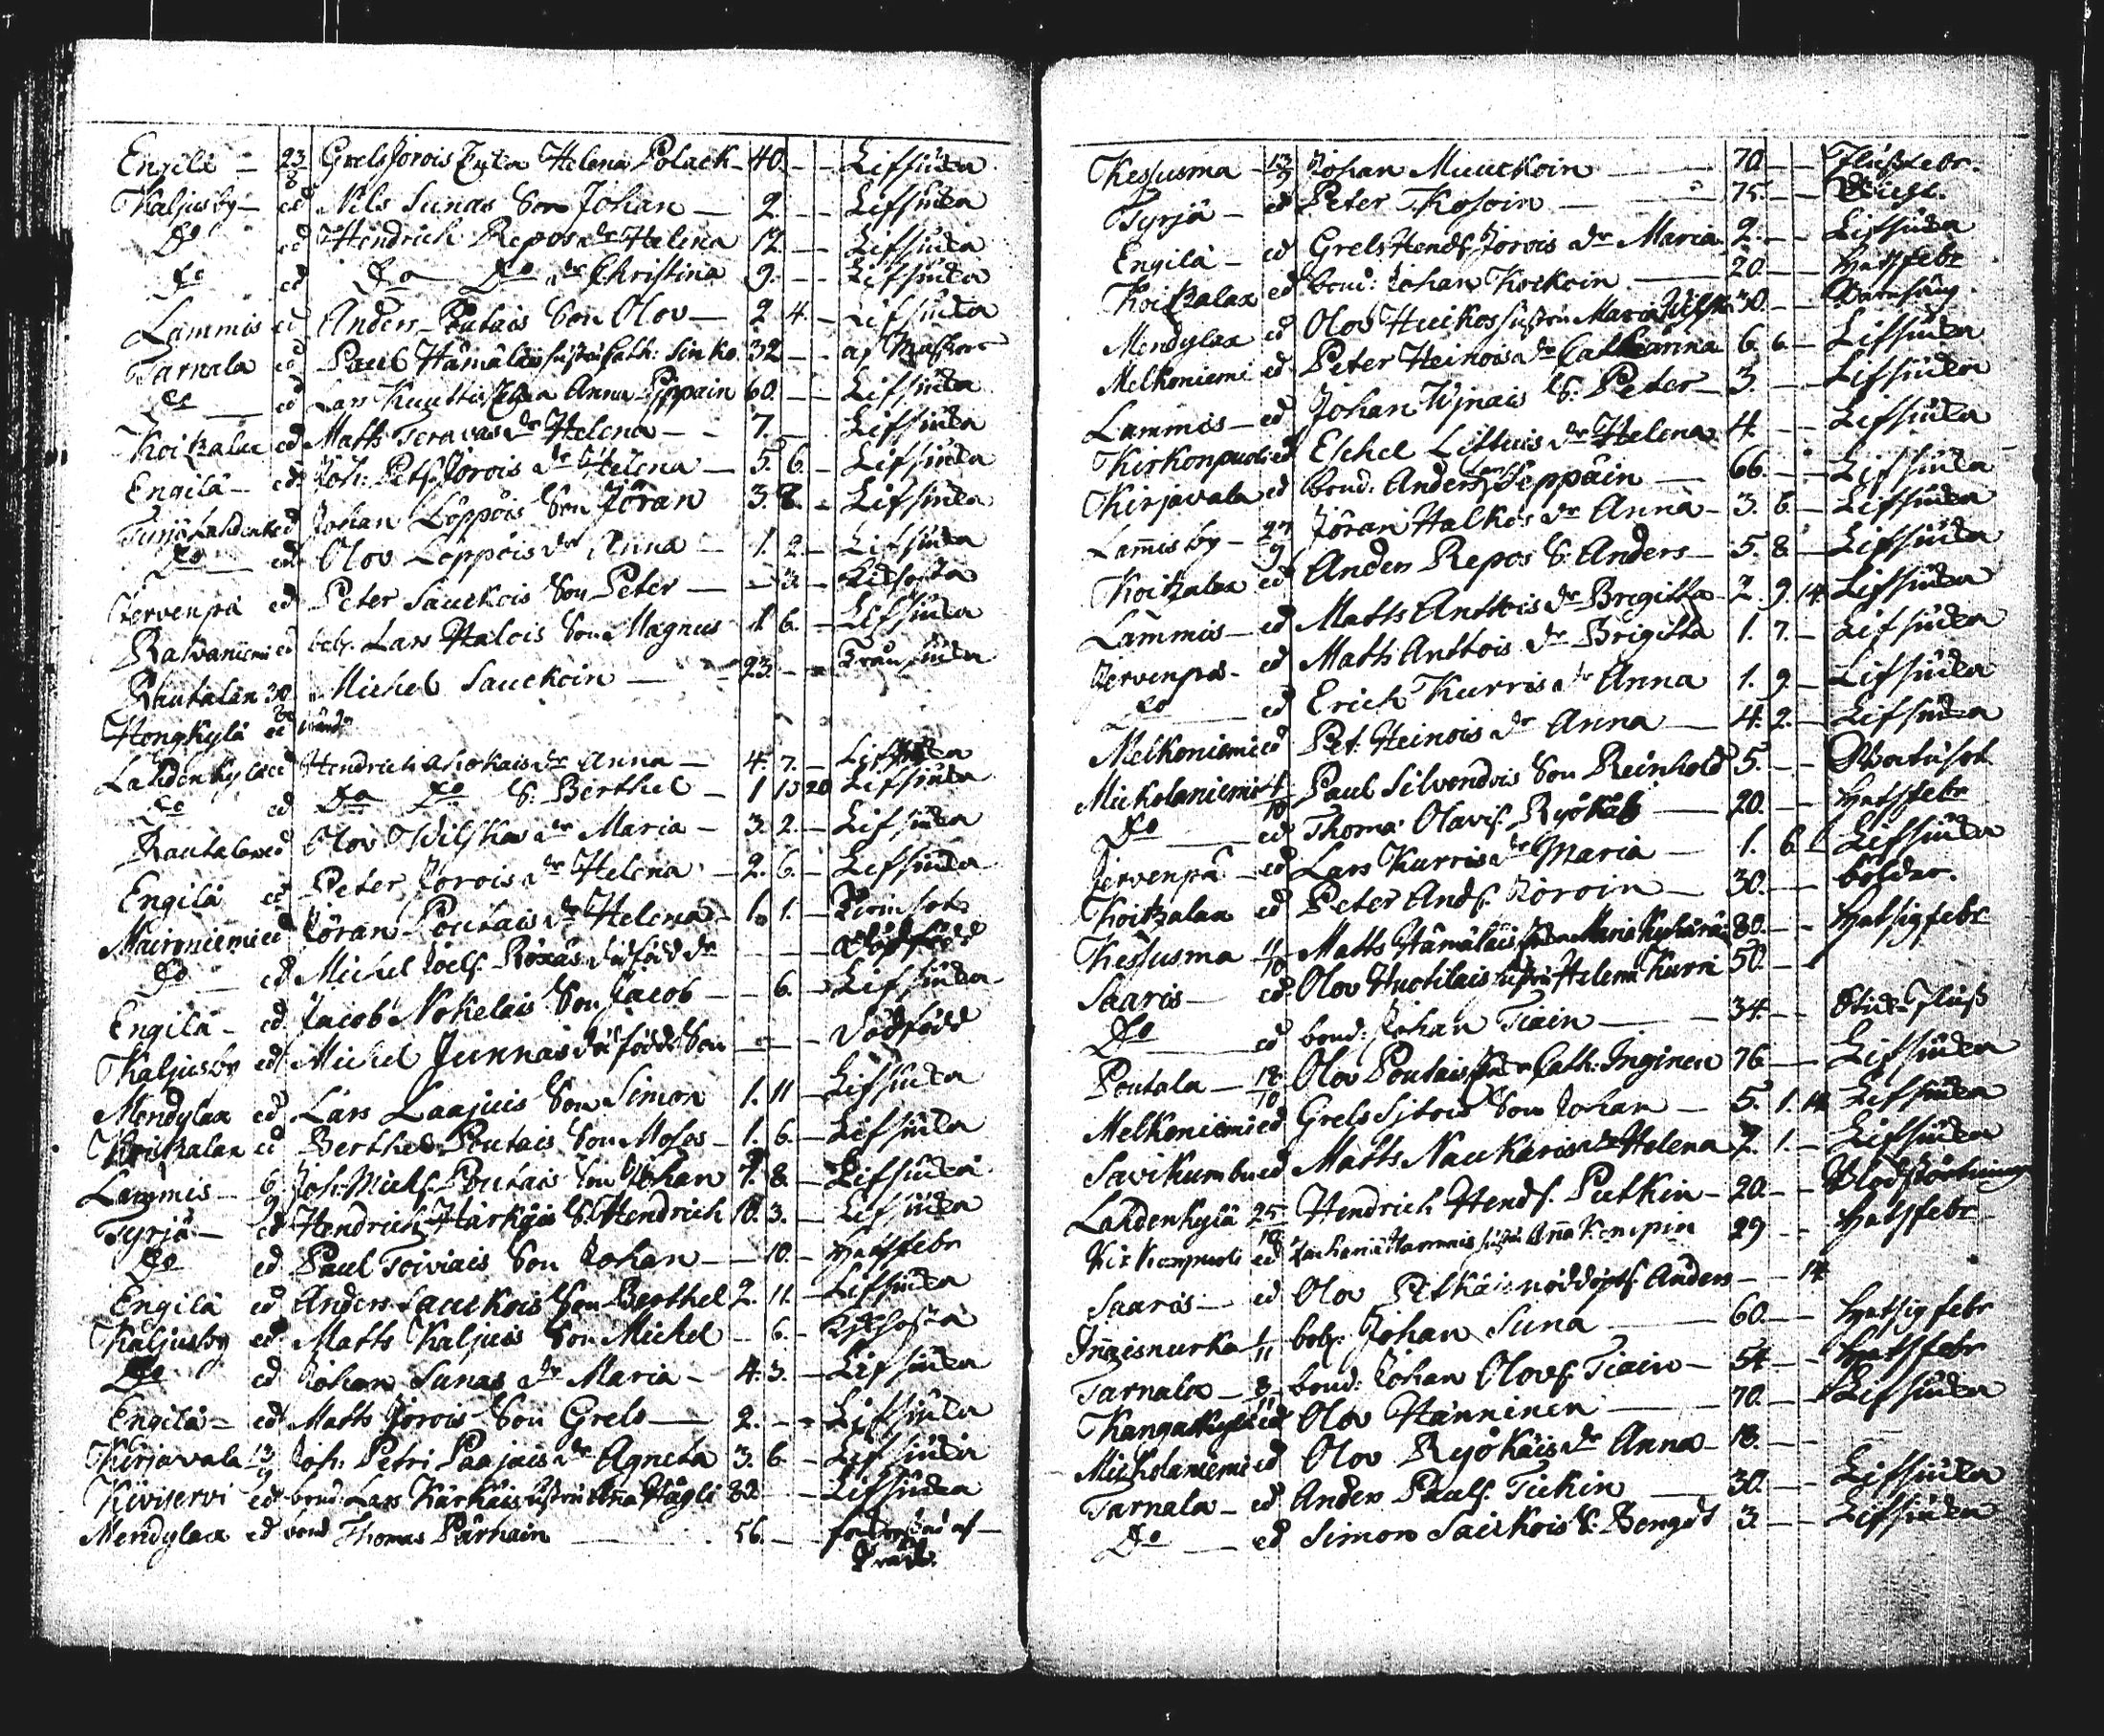 Engilä – 23/8 Grels Jorois Enka Helena Polack – 40. – – Lifsiuka
Kaljusby – ed Nils Sunas Son Johan – 2. – – Lifsiuka
Do ed Hendrich Repos dr Helena 12. – – Lifsiuka
Do ed Do Do dr Christina 9. – – Lifsiuka
Lammis ed Anders Poutais Son Olov – 2. 4. – Lifsiuka
Tarnala ed Paul Hämäläis hustru Cath: Sinko. 32 – – af
Do – ed Lars Kuuttis Anna Pippain 60. – – Lifsiuka
Koitzalax ed Matts Teravas dr Helena – 7. – Lifsiuka
Engilä – ed Joh: Petss. Jorois dr Helena – 5. 6. – Lifsiuka
ed Johan Loppois Son Jöran 3. 8. – Lifsiuka
Do – ed Olov Loppois dr Anna – 1. 2. – Lifsiuka
Jervenpä ed Peter Sauckois Son Peter – – 3 – Kikhosta
Ravaniemi ed Lars Halois Son Magnus 1. 6. – Lifsiuka
Rautalax 30 Michel Sauckoin – – 23. – –
Hongkylä ed
Lahdenkylä ed Hendrich dr Anna – 4. 7. – Lifsiuka
Do ed Do Do S: Berthel – 1 10 20 Lifsiuka
Rautalax ed Olov Wilska dr Maria – 3. 2. – Lifsiuka
Engilä ed Peter Jorois dr Helena – 2. 6. – Lifsiuka
ed Jöran Poutais dr Helena – 1. 1. –
Do – ed Michel Joelss. Roxas dödfödd dr – – dödfödd
Engilä – ed Jacob Nokelais Son Jacob – – 6. – Lifsiuka
Kaljusby ed Michel Junnas dödfödd Son – – – dödfödd
Mendylax ed Lars Laajuis Son Simon 1. 11 – Lifsiuka
Koitzalax ed Berthel Poutais Son Moses – 1. 6. – Lifsiuka
Lammis – 6/9 Joh: Michs. Poutais Son Johan 7. 8. – Lifsiuka
Tyrjä – ed Hendrich Härköis S: Hendrich 10. 3. – Lifsiuka
Do ed Paul Toiviais Son Johan – – 10. – hetsfebr
Engilä ed Anders Sauckois Son Berthel 2. 11. – Lifsiuka
Kaljusby ed Matts Kaljuis Son Michel – 6. – Kikhosta
Do ed Johan Sunas dr Maria – 4. 3. – Lifsiuka
Engilä – ed Matts Jorois Son Grels – 2. – – Lifsiuka
Kirjavala – 13/9 Joh: Petri Paajais dr Agneta 3. 6. – Lifsiuka
Kiviservi ed bond: Lars Kärkäis hustru Anna Hägli 32. – – Lifsiuka
Mendylax ed bond Thomas Pärhäin – – 56. – – af
Kessusma – 13/9 Johan Muuckoin – – 70. – – Flussfebr.
Tyrjä – ed Peter Kosoin – – 75. – –
Engilä – ed Grels Hends. Jorois dr Maria. 2. – – Lifsiuka
Koitzalax ed bond: Johan Kockoin. – 20. – – hetsfebr
Mendylax ed Olov Huikos hustru Maria Wilska 30. – – Barnsäng.
Melkoniemi ed Peter Heinois dr Catharina 6. 6. – Lifsiuka
Lammis – ed Johan S: Peter – 3. – – Lifsiuka
Kirkonpuoli ed Eschel Littuis dr Helena 4. – – Lifsiuka
Kirjavala ed bond: Anders Seppäin – 66. – – Lifsiuka
Lamisby – 27/9 Jöran Halkos dr Anna – 3. 6. – Lifsiuka
Koitzalax ed Anders Repos S: Anders – 5. 8. – Lifsiuka
Lammis – ed Matts Anttois dr Brigitta – 2. 9. 14 Lifsiuka
Jervenpä – ed Matts Anttois dr Brigitta 1. 7. – Lifsiuka
Do – ed Erich Kurris dr Anna 1. 9. – Lifsiuka
Melkoniemi ed Pet: Heinois dr Anna – 4. 2. – Lifsiuka
Mickolaniemi 4/10 Paul Silvendois Son Reinhold 5. – –
Do – ed Thomas Olavis. Ryökäs – 20. – – hetsfebr
Jervenpä – ed Lars Kurris dr Maria – 1. 6. – Lifsiuka
Koitzalax ed Peter Ands. Joroin – 30. – – bölder.
Kessusma 11/10 Matts Hämäläis Maria 80. – – hetsigfebr
Saaris – ed Olov Huotilais hustru Helena Kurri 50. – –
Do – ed bond: Johan Tiain – – 34. – –
Poutala – 18/10 Olov Poutais Cath: Inginen 76 – – Lifsiuka
Melkoniemi ed Grels Sitois Son Johan – 5. 1. 14 Lifsiuka
Savikumbu ed Matts Naukaris dr Helena 2. 1. – Lifsiuka
Lahdenkylä 25/10 Hendrich Hends. Putkin – 20. – – Blodstörtning
Kirkonpuoli ed Zacharia Hammais hustru Anna Kempin 29 – – hetsfebr
Saaris – ed Olov Pitkäis nöddöpts. Anders – – 14
1/11 Johan Suna – 60. – – hetsigfebr
Tarnala – 8/11 bond: Johan Olovs. Tiain – 54 – – hetsfebr
Kangaskylä ed Olov Hänninen – 70. – – Lifsiuka
Mickolaniemi ed Olov Ryökäis dr Anna – 18. – –
Tarnala – ed Anders Pauls. Tickin – 30. – – Lifsiuka
Do – ed Simon Saickois S: Bengt 3. – – Lifsiuka